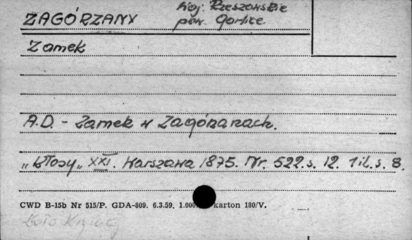 ZAGÓRZANY woj. Rzeszowskie
pow. Gorlice
Zamek
A.D. - Zamek w Zagórzanach.
„Kłosy„ XXI. Warszawa 1875. Nr. 522. s. 12. 1 il. s. 8.
CWD B-15b Nr 515/P. GDA-809. 6.3.59. 1.000 karton 180/V.